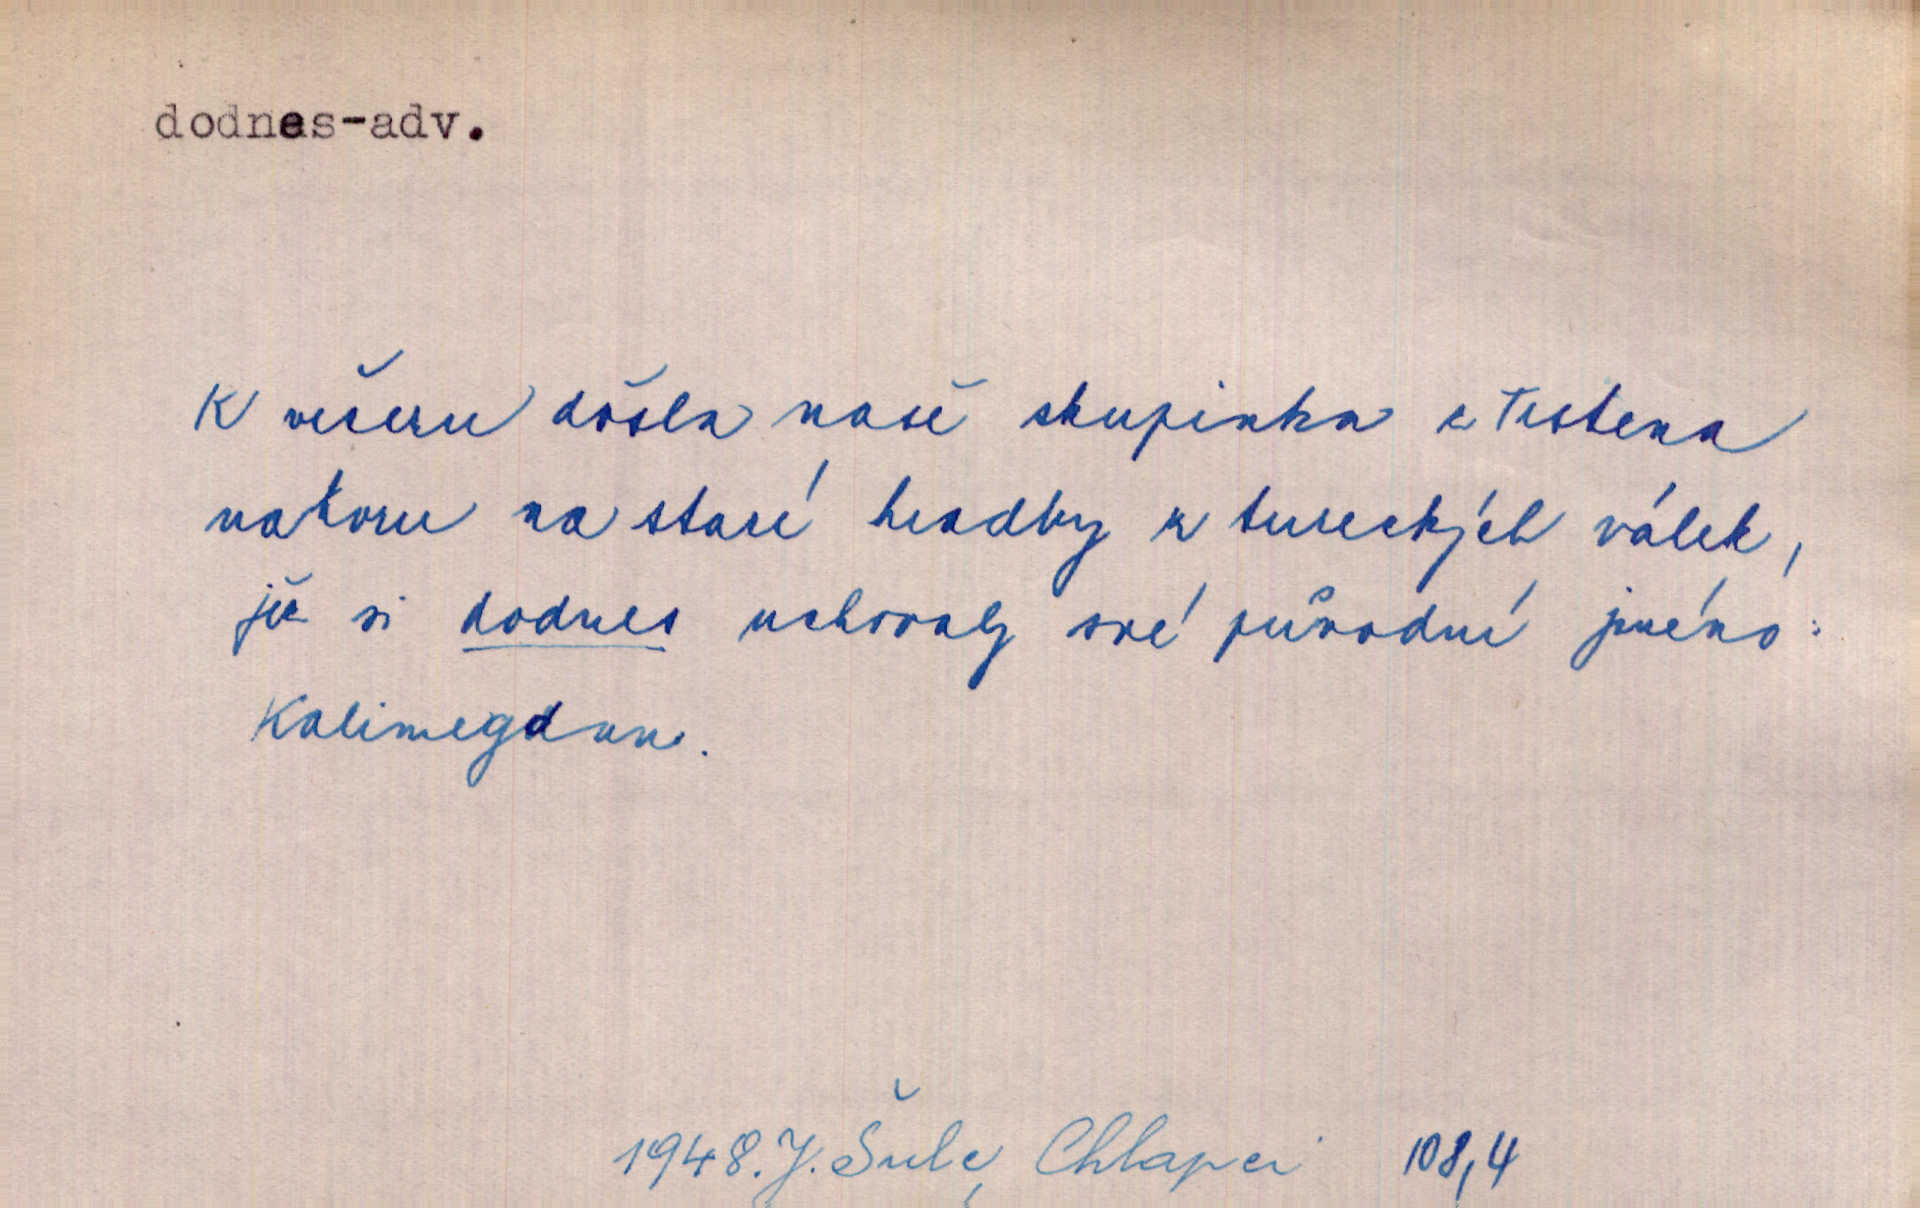 dodnes-adv.
K večeru došla naše skupinka z Trstena
nahoru na staré hradby z tureckých válek,
jež si dodnes uchovaly své původní jméno:
Kalimegdan.
1948. J. Šulc, Chlapci 108,4